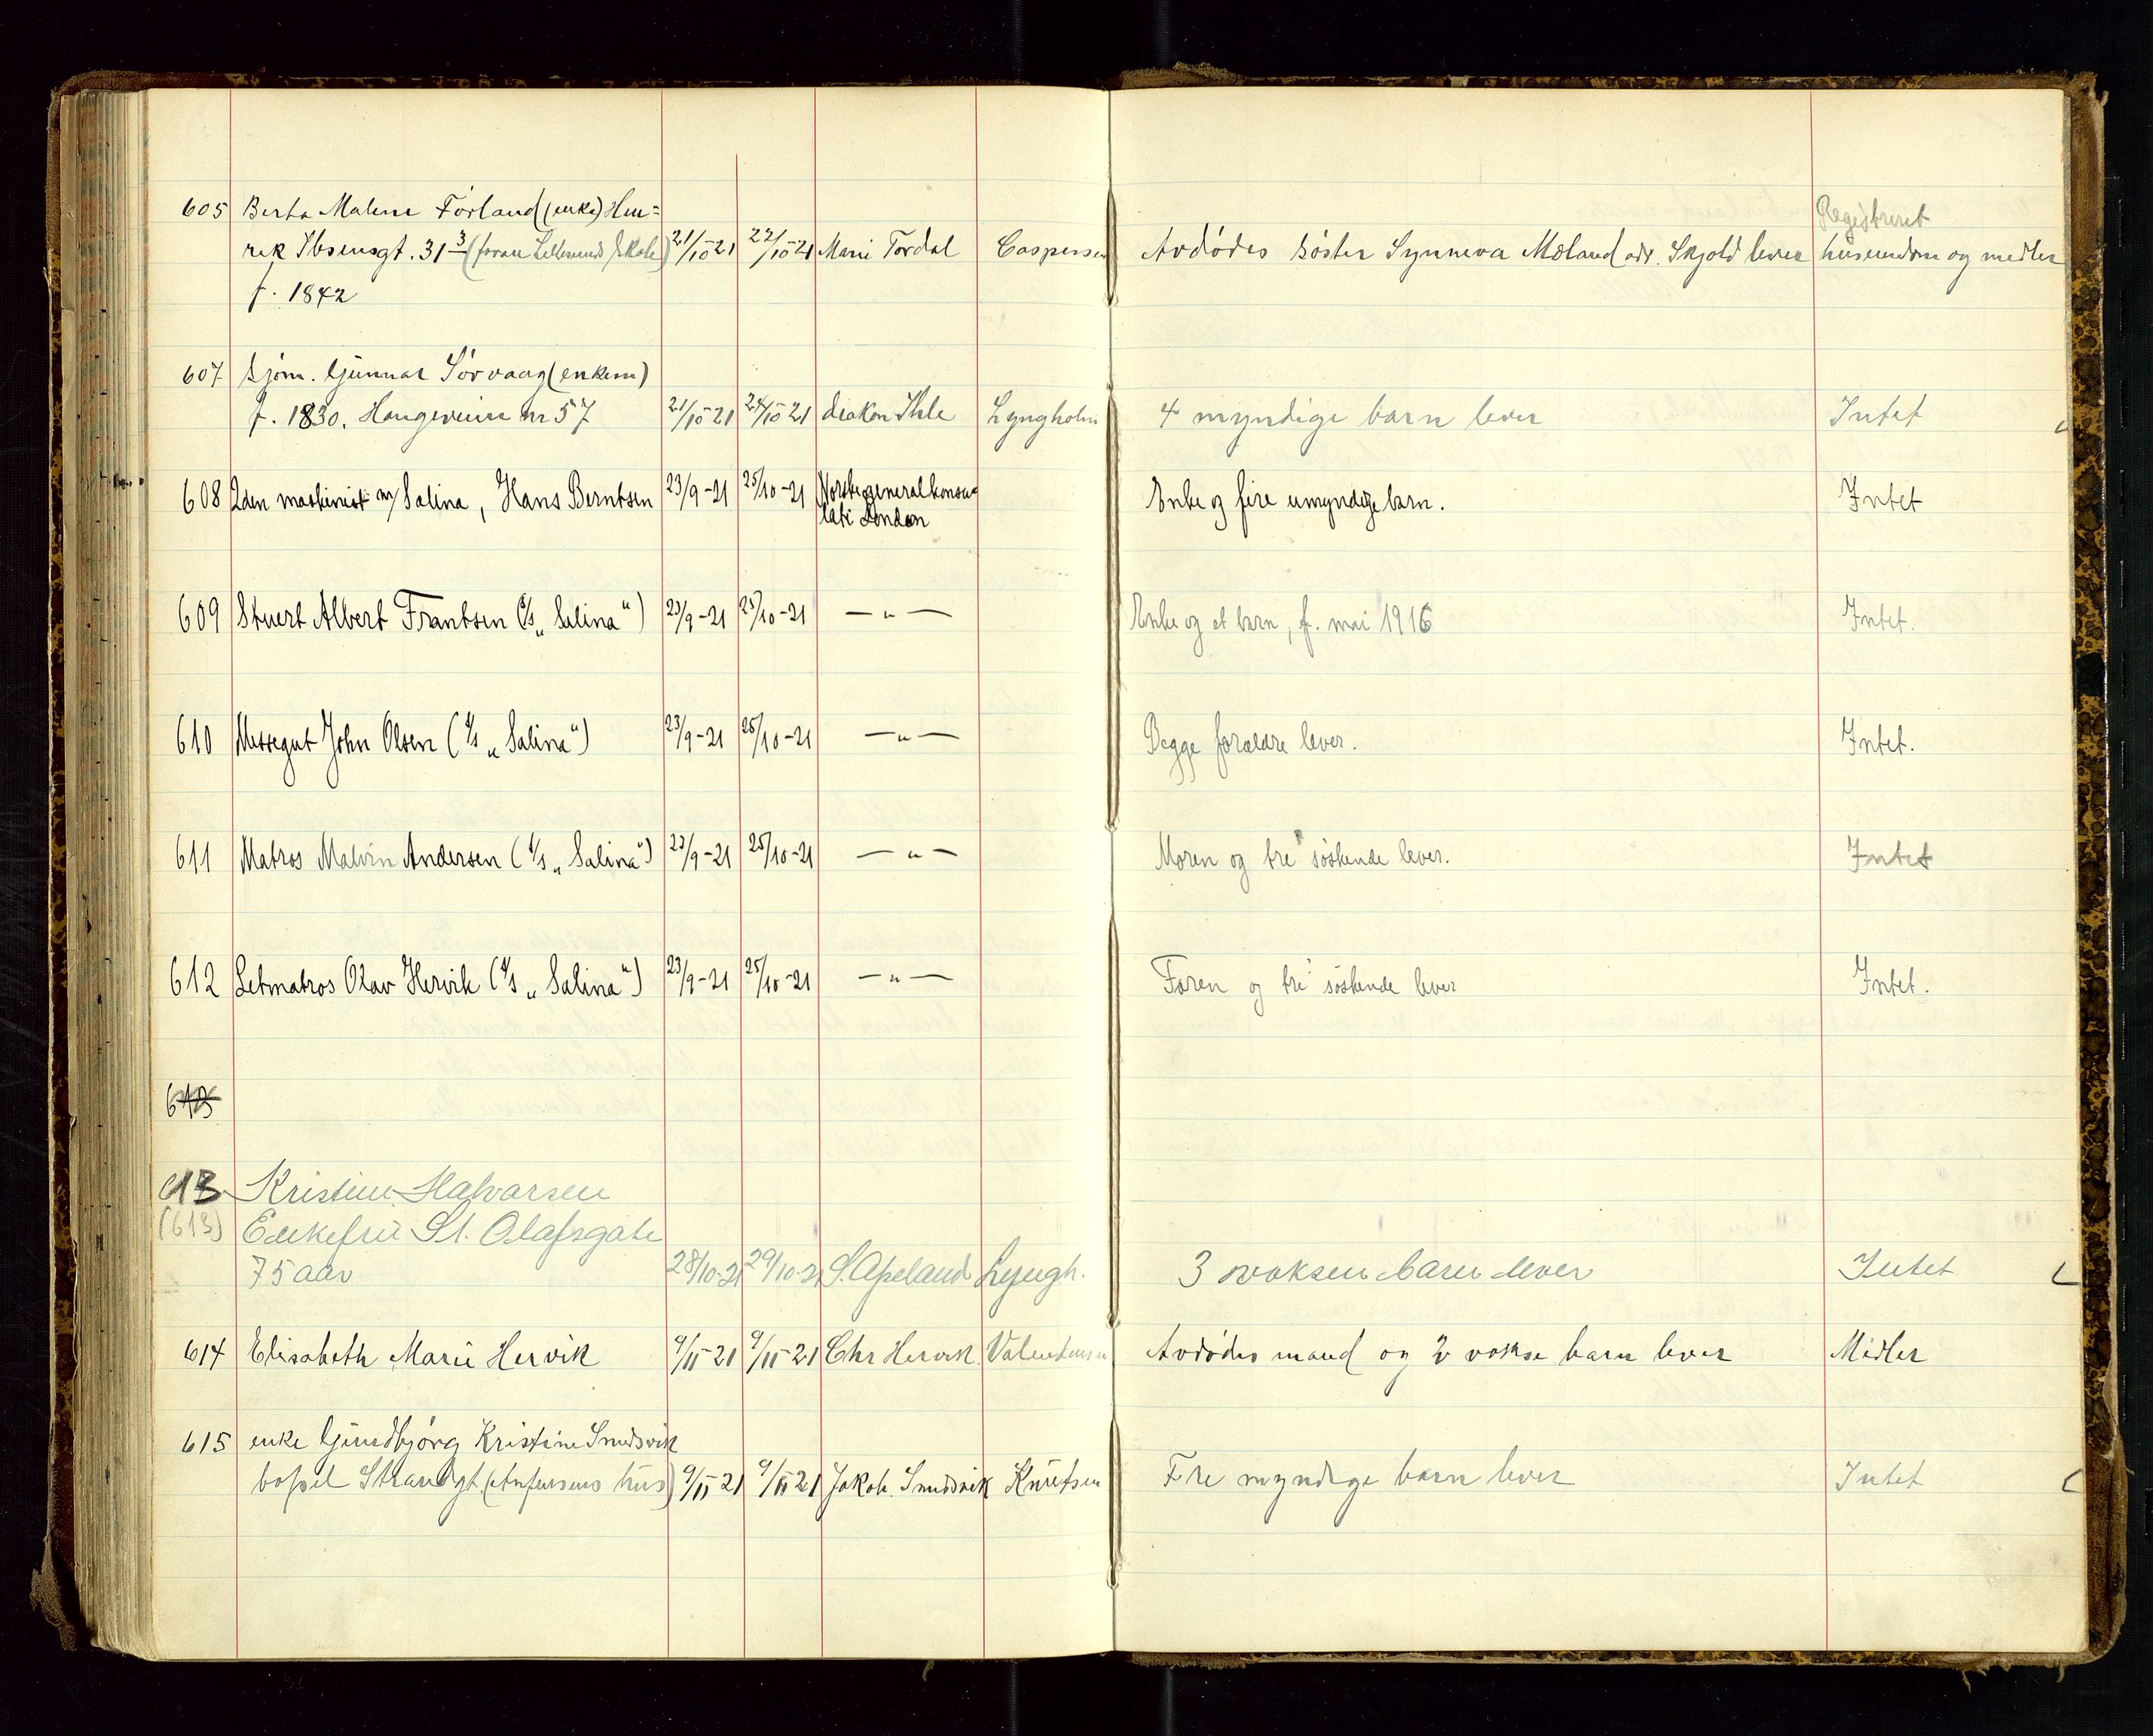 605 Berta Malene Førland (enke) Hen=
Registreret
rik Ibsensgt. 31 3 (foran Lillesunds skole) 21/10 21 22/10 21 Marie Tordal Caspersen Avdødes søster Synneva Mæland adr. Skjold lever huseiendom og medler
f. 1842
607 Sjøm. Gunnar Sørvaag (enkem)
f. 1830. Haugeveien nr 57 21/10 21 24/10 21 diakon Ihle Lyngholm 4 myndige barn lever Intet
608 2den maskinist m/ Salina, Hans Berntsen 23/9-21 25/10-21 Norske generalkonsu- Enke og fire umyndige barn. Intet
lat i London
609 Stuert Albert Frantsen (d/s „Salina") 23/9-21 25/10-21 — „ — Enke og et barn, f. mai 1916 Intet.
610 Messegut John Olsen (d/s „Salina") 23/9-21 25/10-21 — „ — Begge forældre lever. Intet.
611 Matros Malvin Andersen (d/s „Salina") 23/9-21 25/10-21 — „ — Moren og tre søskende lever. Intet
612 Letmatros Olav Hervik (d/s „Salina") 23/9-21 25/10-21 — „ — Faren og tre søskende lever Intet.
613
613 Kristine Halvorsen
(613) Enkefru St. Olafsgate
75 aar 28/10-21 29/10-21 S. Apeland Lyngh. 3 voksen barn lever Intet
614 Elisabeth Marie Hervik 9/11-21 9/11-21 Chr Hervik Valentinsen Avdødes mand og 2 vokse barn lever Midler
615 enke Gundbjørg Kristine Smedsvik
bopel Strandgt ( hus) 9/11 21 9/11 21 Jakob Smedsvik Knutsen Fire myndige barn lever Intet